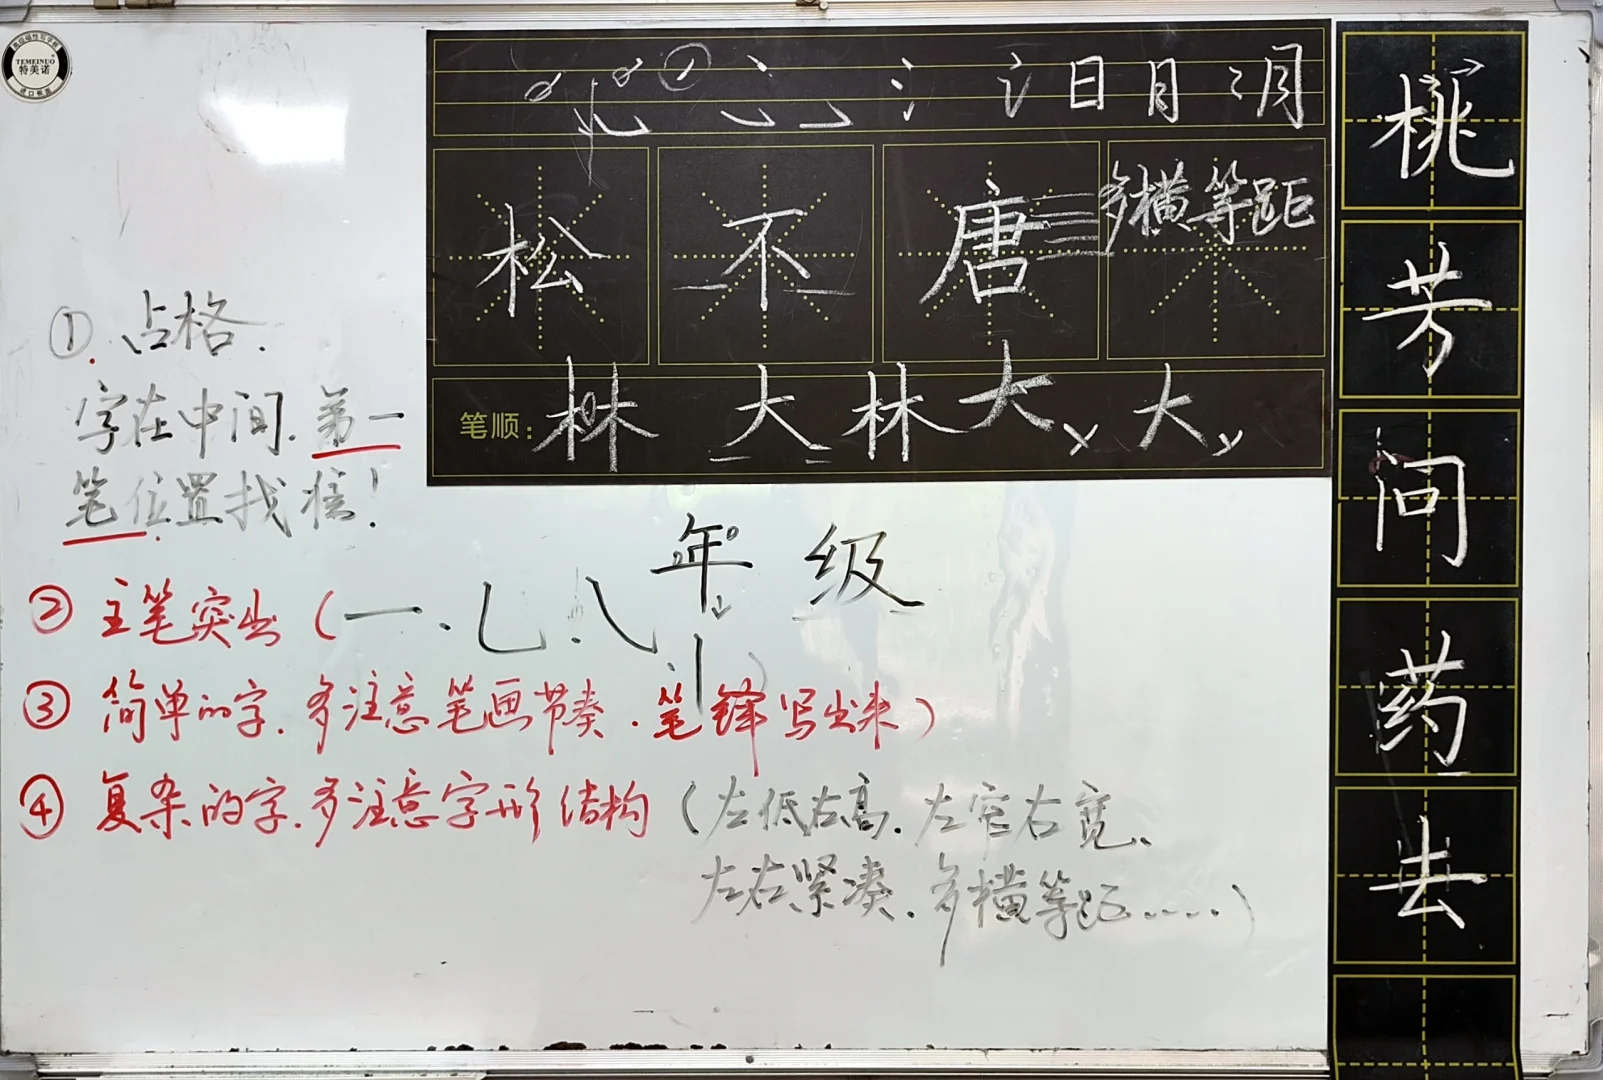 TEMEINUO
特美诺
日月
松不唐
多横等距
笔顺：
林大林大x大x
桃
芳
问
药
去
①.占格.
字在中间.第一
笔位置找准!
年级
②主笔突出(一.乚.八.丨)
③简单的字.多注意笔画节奏.笔锋写出来)
④复杂的字.多注意字形结构(左低右高.左窄右宽、
左右紧凑.多横等距……)